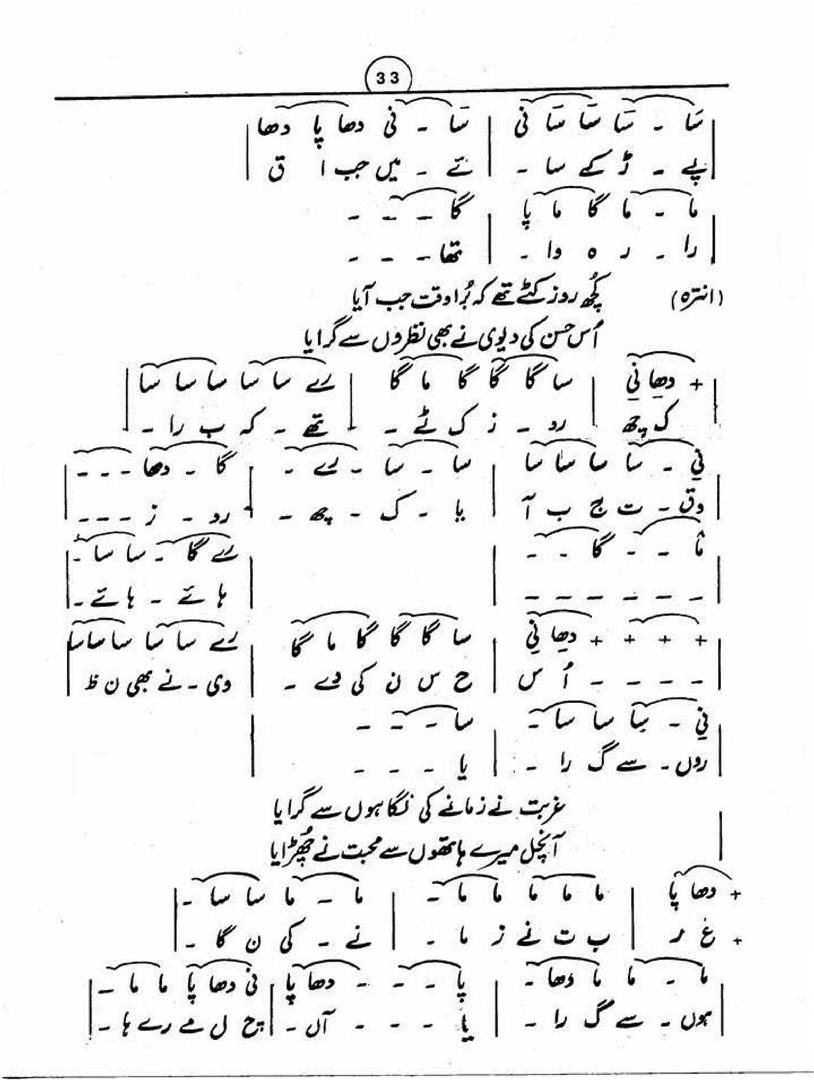 33
سَا ۔ سَا سَا سَا نی | سَا ۔ نی دھا پا دھا |
پے ۔ ڑ کے سا ۔ | ئے ۔ میں جب ا ق |
ما ۔ ما گا ما پا | گا ۔ ۔ ۔
را ۔ ر ہ وا ۔ | تھا ۔ ۔ ۔
(انترہ) کچُھ روز کٹے تھے کہ بُرا وقت جب آیا
اُس حسن کی دیوی نے بھی نظروں سے گرایا
+ دھا نی | سا گا گا گا ما گا | رے سا سا سا سا سا |
ک چھ | رو ۔ ز ک ٹے ۔ | تھے ۔ کہ ب را ۔ |
نی ۔ سا سا سا سا | سا ۔ سا ۔ رے ۔ | گا ۔ دھا ۔ ۔ ۔ |
وق ۔ ت ج ب آ | یا ۔ ک ۔ چھ ۔ | رو ۔ ز ۔ ۔ ۔ |
ما ۔ ۔ گا ۔ ۔ | | رے گا ۔ سا سا ۔ |
۔ ۔ ۔ ۔ ۔ ۔ | | ہا ئے ۔ ہا ئے ۔ |
+ + + + دھا نی | سا گا گا گا ما گا | رے سا سا سا سا سا سا |
۔ ۔ ۔ ۔ اُ س | ح س ن کی دے ۔ | وی ۔ نے بھی ن ظ |
نی ۔ سا سا سا ۔ | سا ۔ ۔ ۔ |
روں ۔ سے گ را ۔ | یا ۔ ۔ ۔ |
غربت نے زمانے کی نگاہوں سے گرایا
آنچل میرے ہاتھوں سے محبت نے چھُڑایا
+ دھا پا | ما ما ما ما ما ۔ | ما ۔ ما سا سا ۔ |
+ غ ر | ب ت نے ز ما ۔ | نے ۔ کی ن گا ۔ |
ما ۔ ما ما دھا ۔ | پا ۔ ۔ ۔ دھا پا | نی دھا پا ما ما ۔ |
ہوں ۔ سے گ را ۔ | یا ۔ ۔ ۔ آں ۔ | چ ل مے رے ہا ۔ |